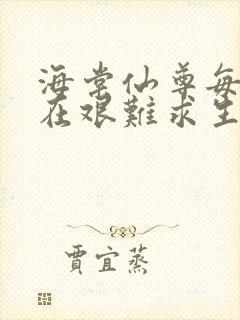 海棠仙尊每
在艰難求生
賈宜蒸